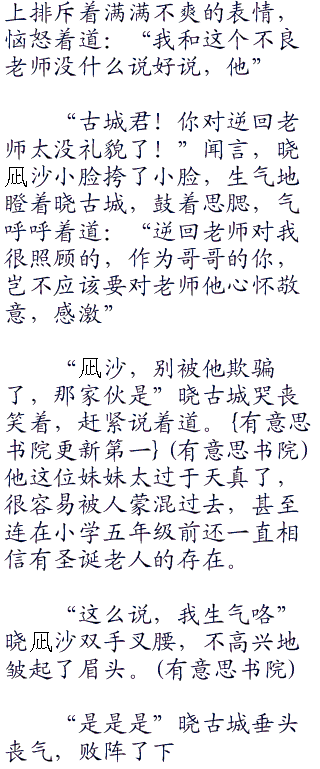 上排斥着满满不爽的表情，
恼怒着道：“我和这个不良
老师没什么说好说，他”
“古城君！你对逆回老
师太没礼貌了！”闻言，晓
凪沙小脸挎了小脸，生气地
瞪着晓古城，鼓着思腮，气
呼呼着道：“逆回老师对我
很照顾的，作为哥哥的你，
岂不应该要对老师他心怀敬
意，感激”
“凪沙，别被他欺骗
了，那家伙是”晓古城哭丧
笑着，赶紧说着道。{有意思
书院更新第一}(有意思书院)
他这位妹妹太过于天真了，
很容易被人蒙混过去，甚至
连在小学五年级前还一直相
信有圣诞老人的存在。
“这么说，我生气咯”
晓凪沙双手叉腰，不高兴地
皱起了眉头。(有意思书院)
“是是是”晓古城垂头
丧气，败阵了下